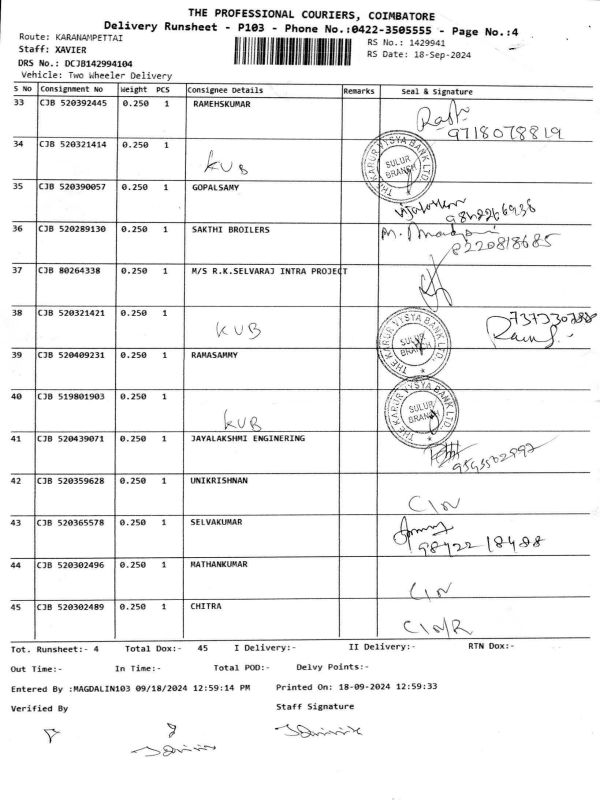 THE PROFESSIONAL COURIERS, COIMBATORE
Delivery Runsheet - P103 - Phone No.:0422-3505555 - Page No.:4
Route: KARANAMPETTAI
RS No.: 1429941
Staff: XAVIER
RS Date: 18-Sep-2024
DRS No.: DCJB142994104
Vehicle: Two Wheeler Delivery
S No Consignment No Weight PCS Consignee Details Remarks Seal & Signature
33 CJB 520392445 0.250 1 RAMEHSKUMAR
9718078819
34 CJB 520321414 0.250 1 KVB THE KARUR VYSYA BANK LTD. SULUR BRANCH
35 CJB 520390057 0.250 1 GOPALSAMY
36 CJB 520289130 0.250 1 SAKTHI BROILERS
8220818685
37 CJB 80264338 0.250 1 M/S R.K.SELVARAJ INTRA PROJECT
38 CJB 520321421 0.250 1 KVB THE KARUR VYSYA BANK LTD. SULUR BRANCH
39 CJB 520409231 0.250 1 RAMASAMMY
40 CJB 519801903 0.250 1 KVB THE KARUR VYSYA BANK LTD. SULUR BRANCH
41 CJB 520439071 0.250 1 JAYALAKSHMI ENGINERING
42 CJB 520359628 0.250 1 UNIKRISHNAN
43 CJB 520365578 0.250 1 SELVAKUMAR
98422 18488
44 CJB 520302496 0.250 1 MATHANKUMAR
45 CJB 520302489 0.250 1 CHITRA
Tot. Runsheet:- 4 Total Dox:- 45 I Delivery:- II Delivery:- RTN Dox:-
Out Time:- In Time:- Total POD:- Delvy Points:-
Entered By :MAGDALIN103 09/18/2024 12:59:14 PM Printed On: 18-09-2024 12:59:33
Verified By Staff Signature